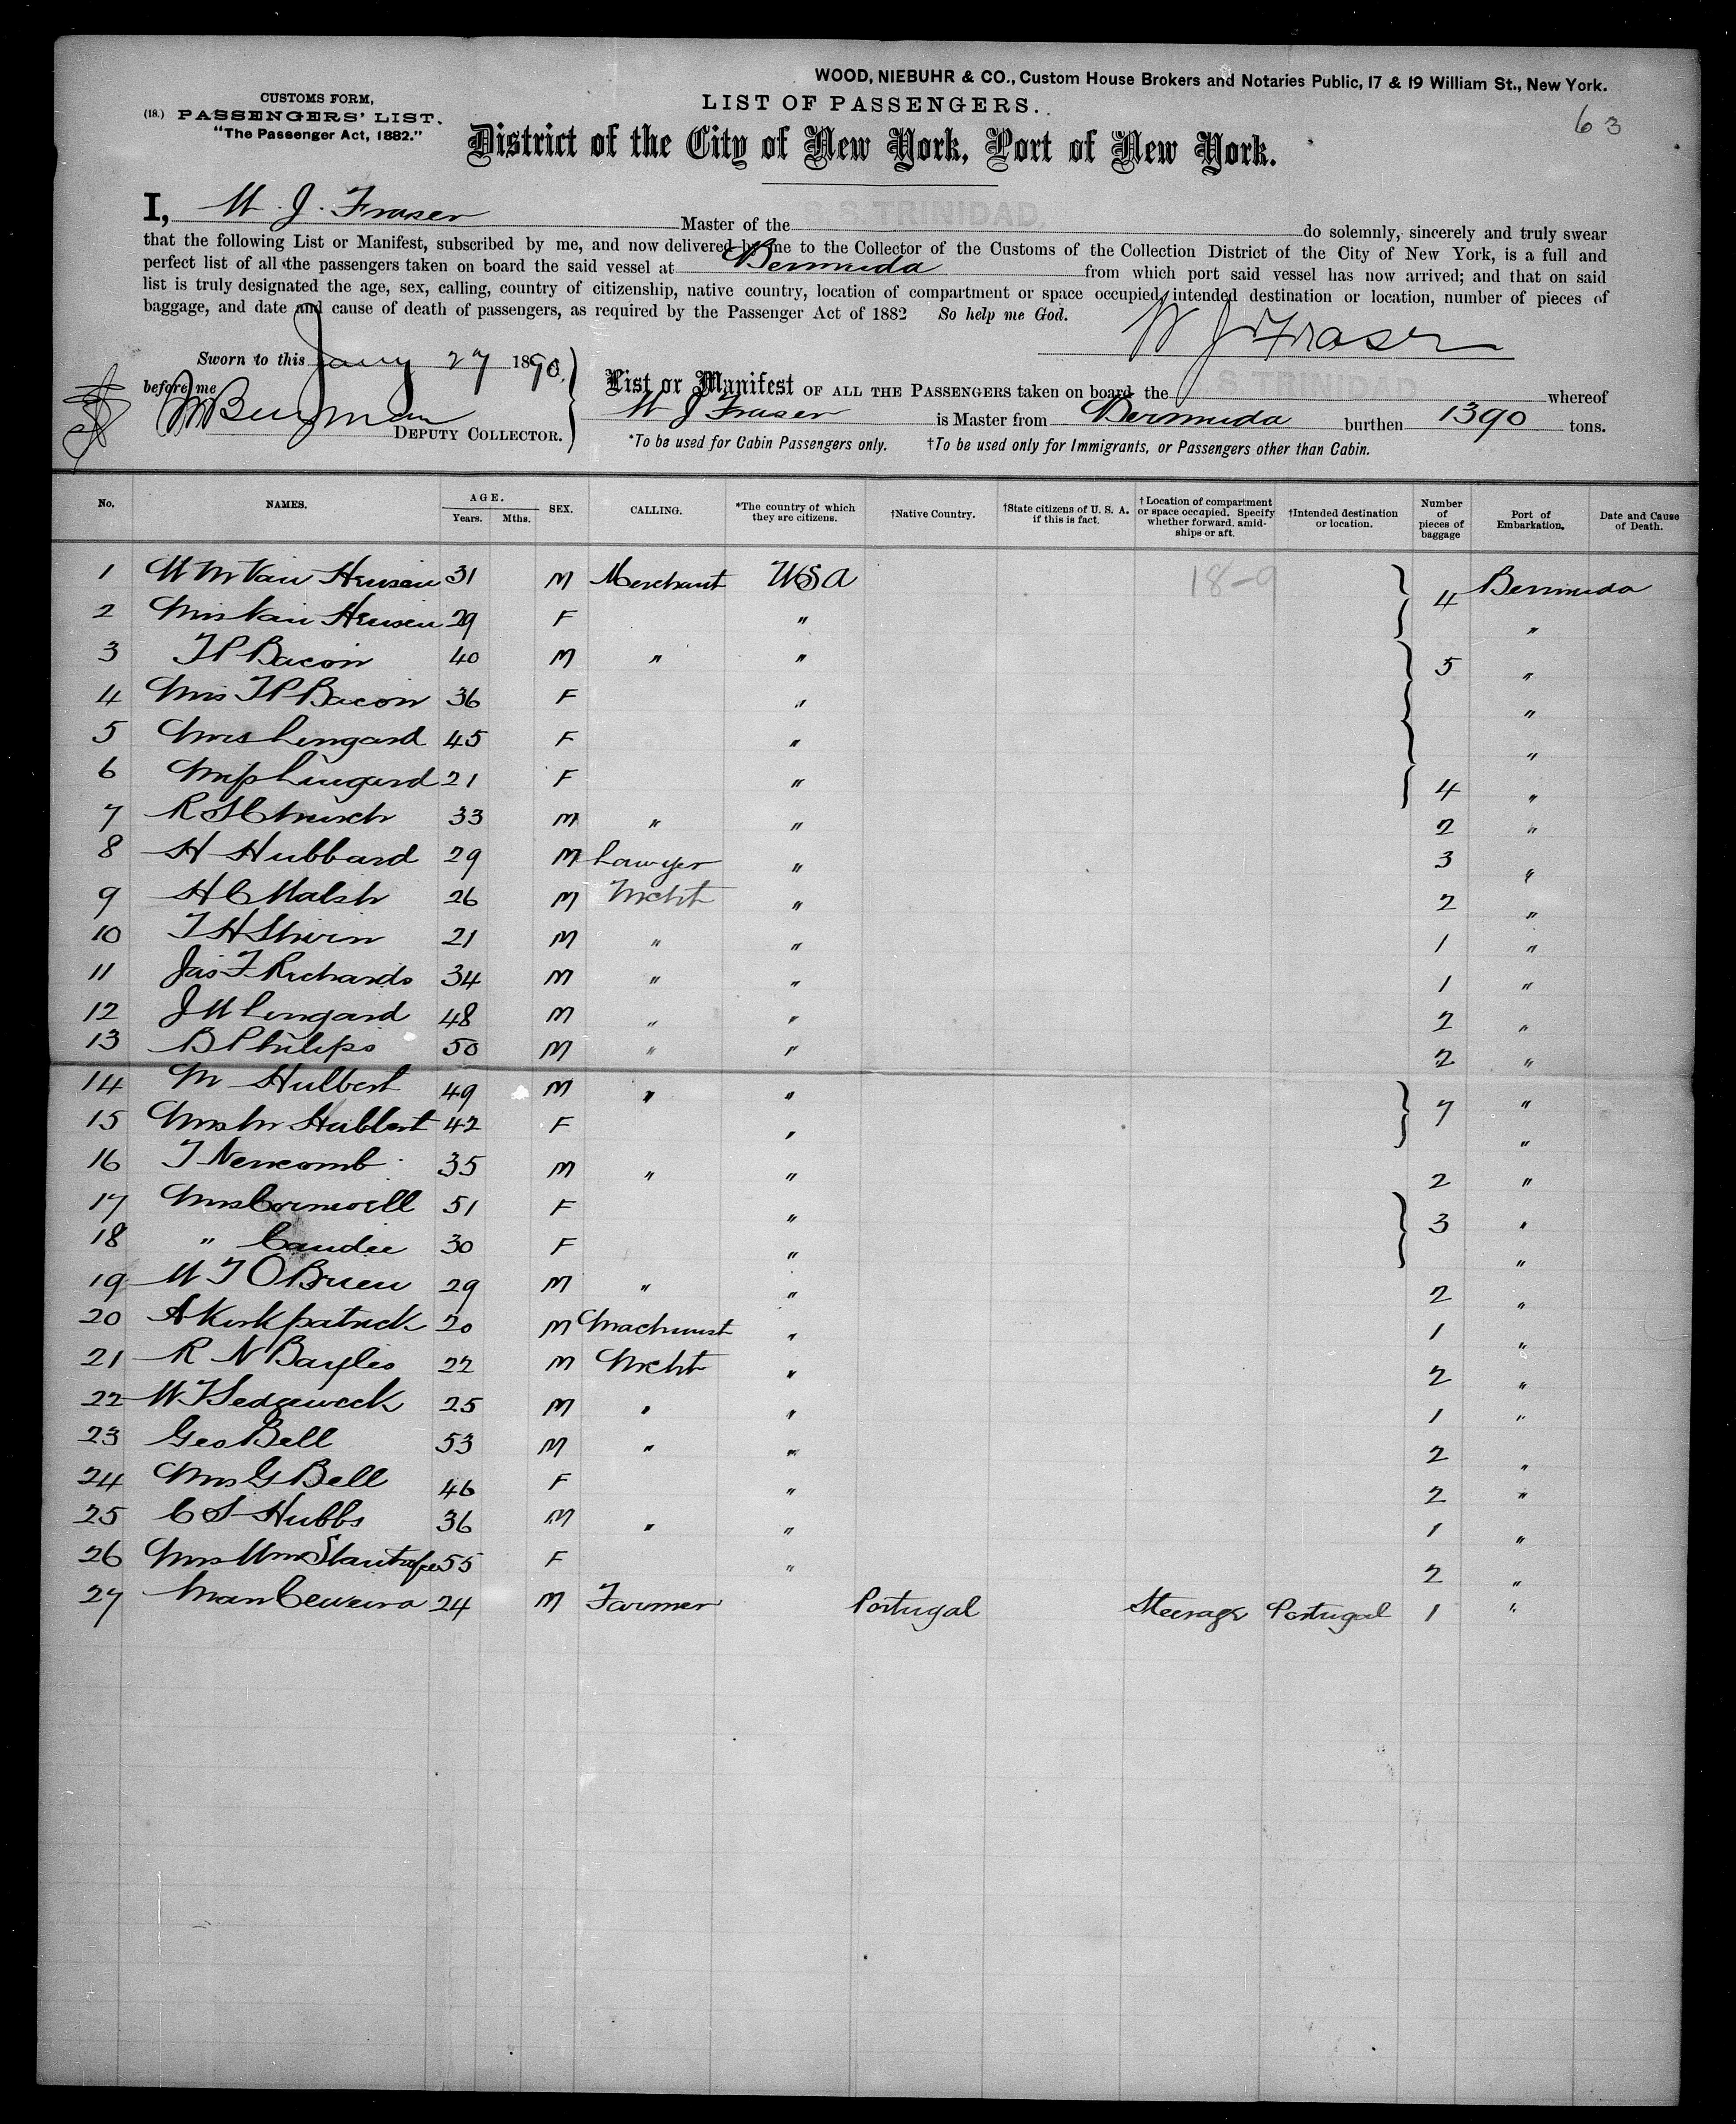 WOOD, NIEBUHR & CO., Custom House Brokers and Notaries Public, 17 & 19 William St., New York.
CUSTOMS FORM,
(18.) PASSENGERS' LIST.
"The Passenger Act, 1882."
LIST OF PASSENGERS.
63
District of the City of New York, Port of New York.
I, W. J. Fraser Master of the S.S. TRINIDAD, do solemnly, sincerely and truly swear
that the following List or Manifest, subscribed by me, and now delivered by me to the Collector of the Customs of the Collection District of the City of New York, is a full and
perfect list of all the passengers taken on board the said vessel at Bermuda from which port said vessel has now arrived; and that on said
list is truly designated the age, sex, calling, country of citizenship, native country, location of compartment or space occupied, intended destination or location, number of pieces of
baggage, and date and cause of death of passengers, as required by the Passenger Act of 1882 So help me God.
W J Fraser
Sworn to this Jany 27 1890,
before me
DEPUTY COLLECTOR.
List or Manifest OF ALL THE PASSENGERS taken on board the S. S. TRINIDAD whereof
W J Fraser is Master from Bermuda burthen 1390 tons.
*To be used for Cabin Passengers only. †To be used only for Immigrants, or Passengers other than Cabin.
No. NAMES. AGE. Years. Mths. SEX. CALLING. *The country of which they are citizens. †Native Country. †State citizens of U. S. A. if this is fact. †Location of compartment or space occupied. Specify whether forward, amidships or aft. †Intended destination or location. Number of pieces of baggage Port of Embarkation. Date and Cause of Death.
1 W M Van 31 M Merchant USA 18-9 4 Bermuda
2 Mrs Van 29 F " "
3 T P Bacon 40 M " " 5 "
4 Mrs T P Bacon 36 F " "
5 Mrs Lingard 45 F " "
6 Miss Lingard 21 F " 4 "
7 R S Church 33 M " " 2 "
8 H Hubbard 29 M Lawyer " 3 "
9 H C Walsh 26 M Mcht " 2 "
10 T H 21 M " " 1 "
11 Jas F Richards 34 M " " 1 "
12 J W Lingard 48 M " " 2 "
13 B Philips 50 M " " 2 "
14 M Hulbert 49 M " " 7 "
15 Mrs M Hulbert 42 F " "
16 T Newcomb 35 M " " 2 "
17 Mrs Cornwell 51 F " 3 "
18 " Candee 30 F " "
19 W T O'Brien 29 M " " 2 "
20 A Kirkpatrick 20 M Machinist " 1 "
21 R N Baylis 22 M Mcht " 2 "
22 W T Sedgewick 25 M " " 1 "
23 Geo Bell 53 M " " 2 "
24 Mrs G Bell 46 F " 2 "
25 C S Hubbs 36 M " " 1 "
26 Mrs Wm 55 F " 2 "
27 24 M Farmer Portugal Steerage Portugal 1 "